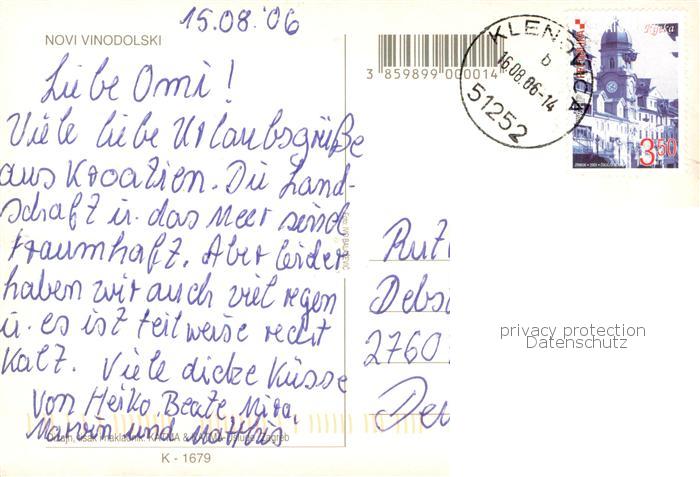 15.08.'06
NOVI VINODOLSKI
3 859899 000014
KLENOVICA
b
16.08.06-14
51252
Rijeka
3.50
Liebe Omi!
Viele liebe Urlaubsgrüße
aus Kroatien. Die Land-
schaft u. das Meer sind
traumhaft. Aber leider
haben wir auch viel regen
u. es ist teilweise recht
kalt. Viele dicke Küsse
von Heiko, Beate, Mira,
Marvin und Matthis
Dizajn, tisak i nakladnik:
Zagreb
K - 1679
Debs
2760
privacy protection
Datenschutz